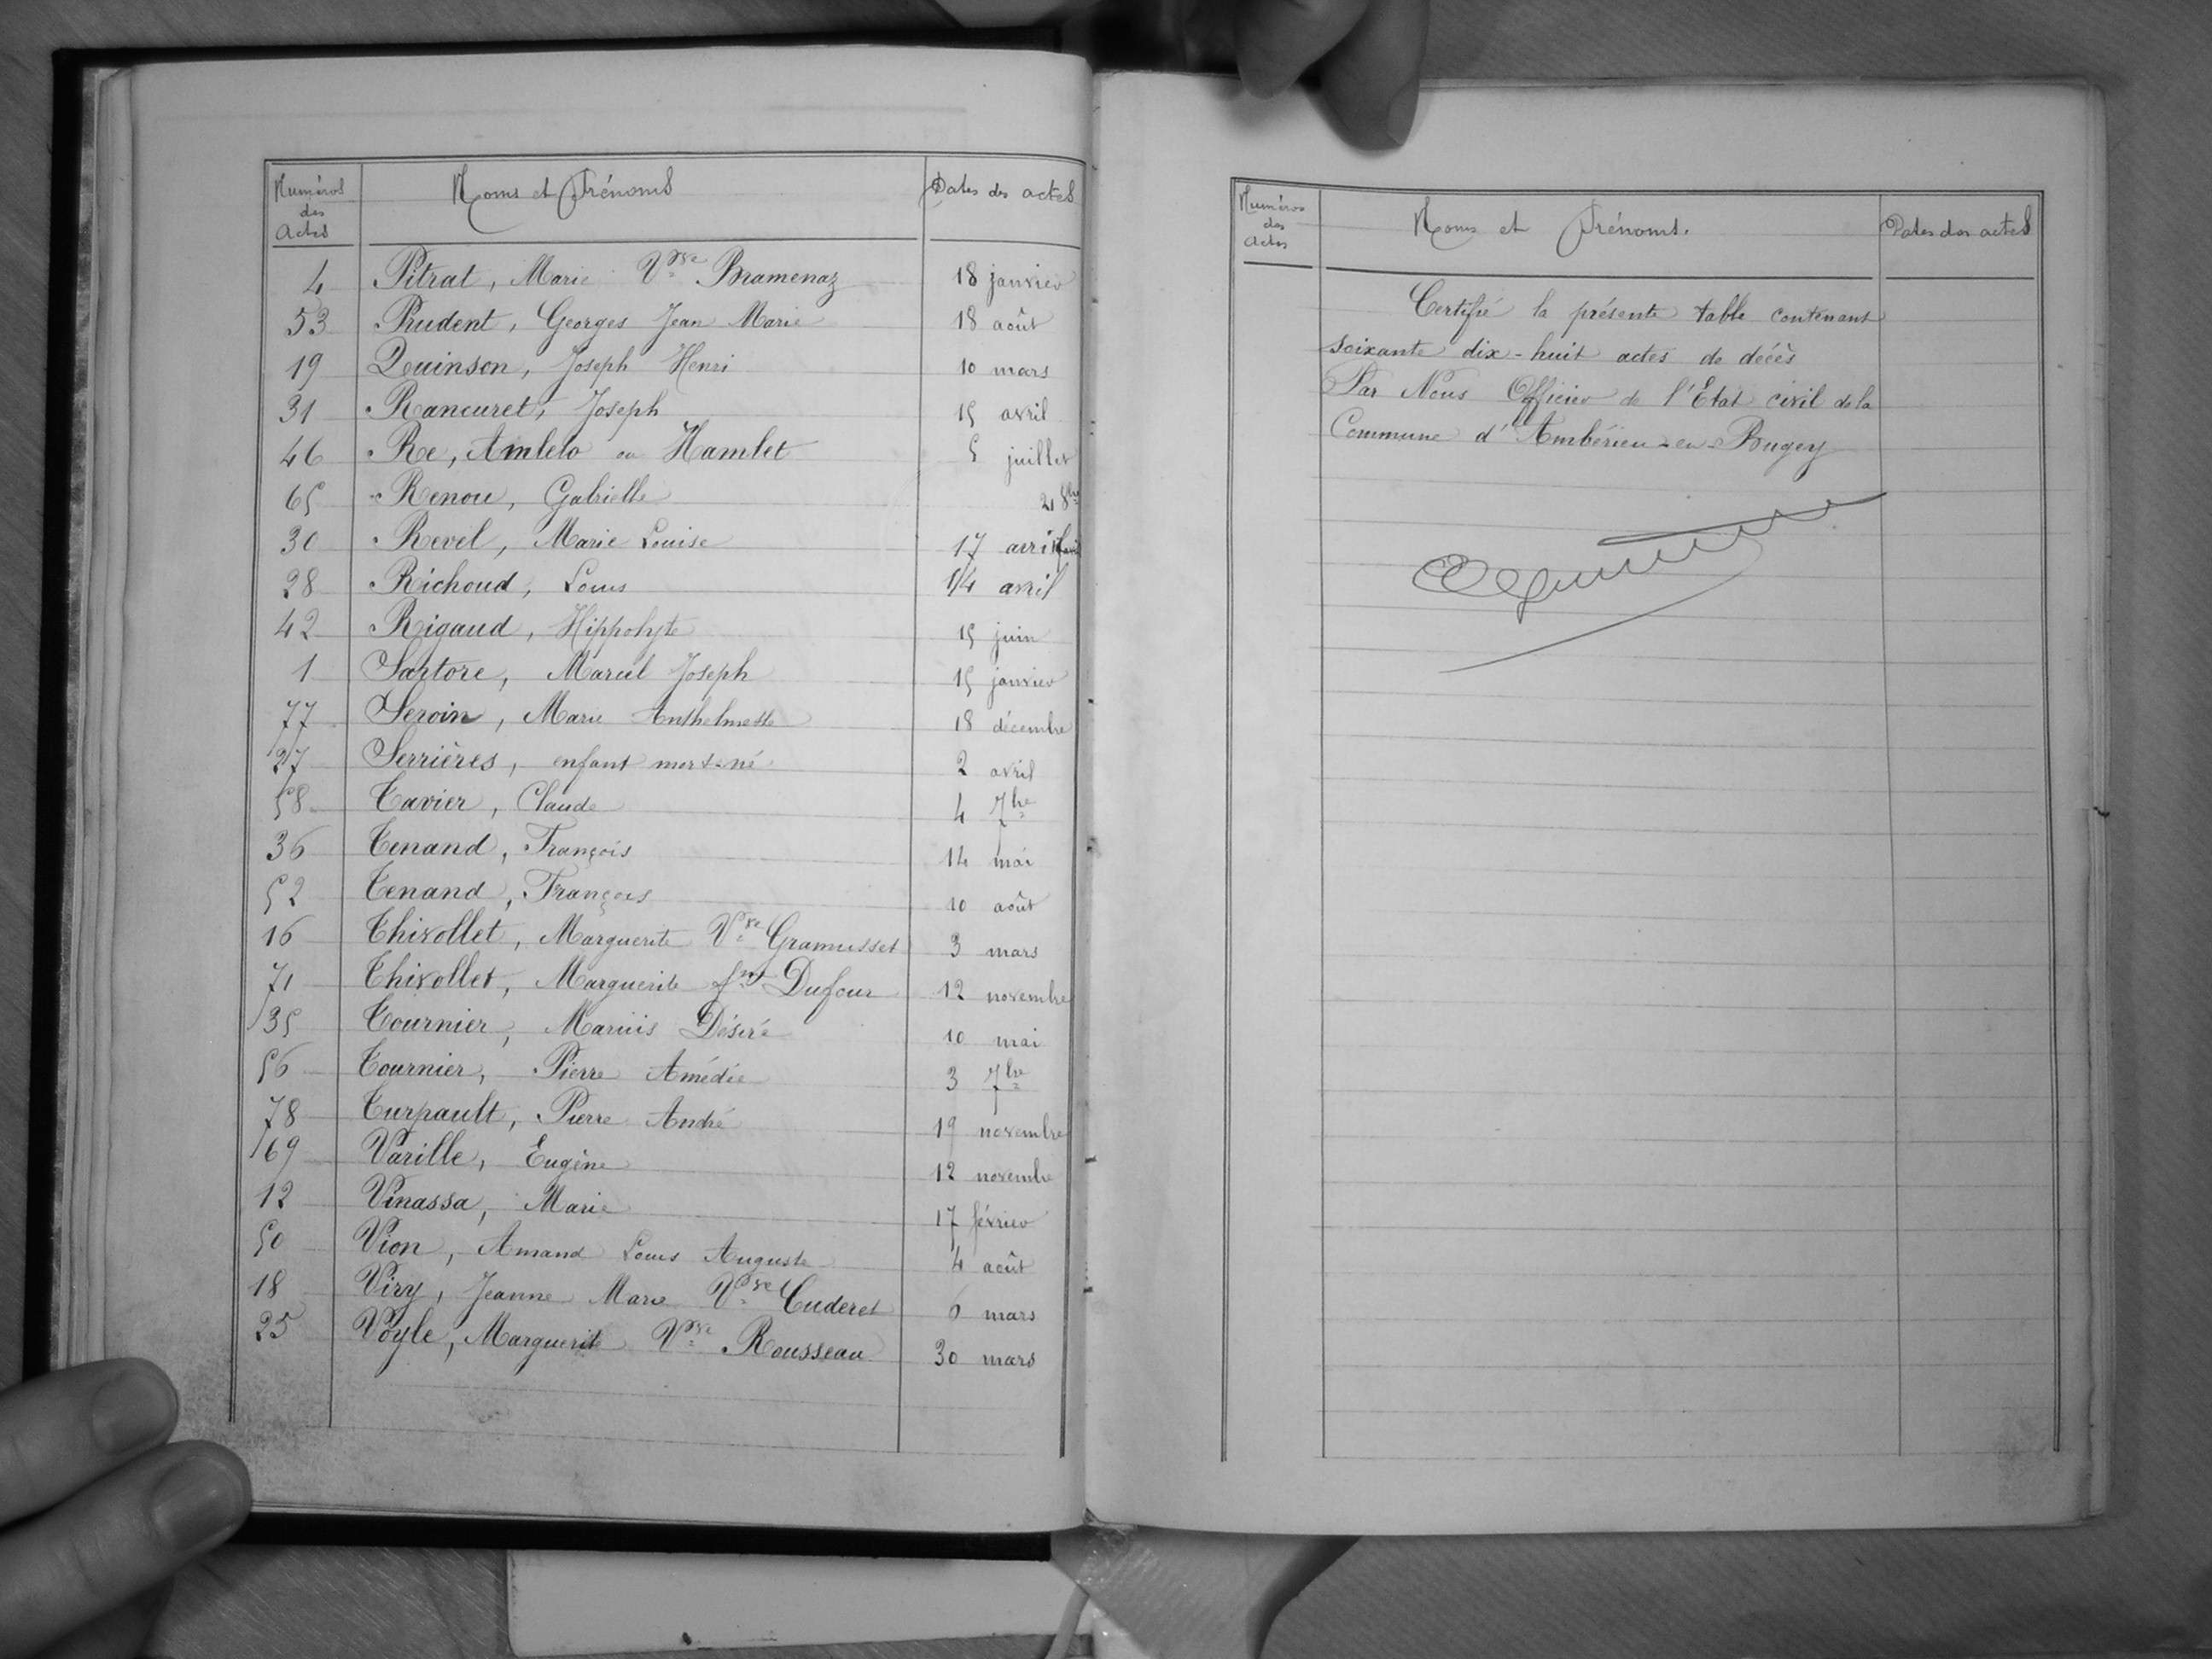 Numéros des Actes Noms et Prénoms Dates des actes
4 Pitrat, Marie Vve Bramenaz 18 janvier
53 Prudent, Georges Jean Marie 18 août
19 Quinson, Joseph Henri 10 mars
31 Rancuret, Joseph 15 avril
46 Re, Amleto ou Hamlet 5 juillet
65 Renou, Gabrielle 21 8bre
30 Revel, Marie Louise 17 avril
28 Richoud, Louis 14 avril
42 Rigaud, Hippolyte 15 juin
1 Sartore, Marcel Joseph 15 janvier
77 Seroin, Marie Anthelmette 18 décembre
27 Serrières, enfant mort-né 2 avril
58 Tavier, Claude 4 7bre
36 Tenand, François 14 mai
52 Tenand, François 10 août
16 Thivollet, Marguerite Vve Gramusset 3 mars
71 Thivollet, Marguerite fme Dufour 12 novembre
35 Tournier, Marius Désiré 10 mai
56 Tournier, Pierre Amédée 3 7bre
78 Turpault, Pierre André 19 novembre
69 Varille, Eugène 12 novembre
12 Vinassa, Marie 17 février
50 Vion, Amand Louis Auguste 4 août
18 Viry, Jeanne Marie Vve Cuderet 6 mars
25 Voyle, Marguerite Vve Rousseau 30 mars
Numéros des Actes Noms et Prénoms. Dates des actes
Certifié la présente table contenant
soixante dix-huit actes de décès
Par Nous Officier de l'Etat civil de la
Commune d'Ambérieu-en-Bugey